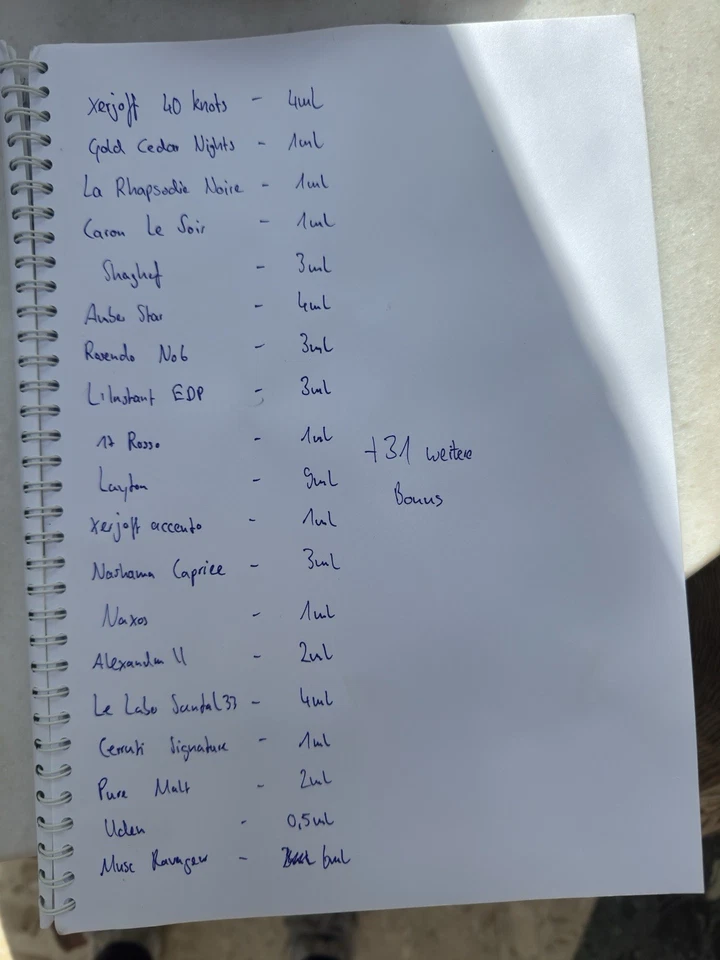 Xerjoff 40 knots - 4ml
Gold Cedar Nights - 1ml
La Rhapsodie Noire - 1ml
Caron Le Soir - 1ml
Shaghaf - 3ml
Amber Star - 4ml
Rosendo No6 - 3ml
L'Instant EDP - 3ml
17 Rosso - 1ml
Layton - 9ml
Xerjoff accento - 1ml
Nashama Caprice - 3ml
Naxos - 1ml
Alexandria II - 2ml
Le Labo Santal 33 - 4ml
Cerruti Signature - 1ml
Pure Malt - 2ml
Uden - 0,5ml
Musc Ravageur - 6ml
+31 weitere
Bonus